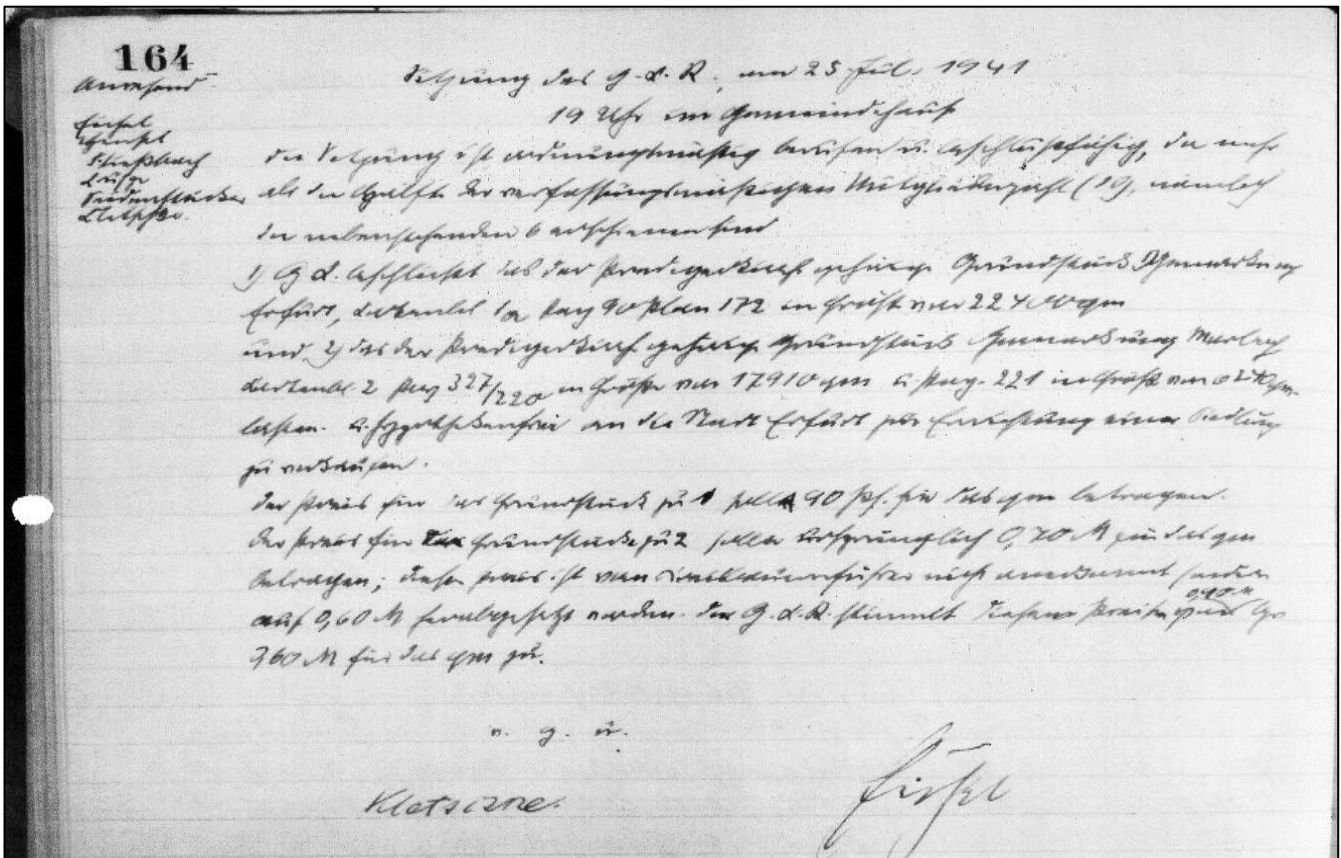 164
Anwesend
Sitzung des G.K.R. am 25 Juli 1941
19 Uhr im Gemeindehause
Die Sitzung ist ordnungsmäßig berufen u. beschlußfähig, da mehr
als die Hälfte der verfassungsmäßigen Mitgliederzahl nämlich
die nebenstehenden 6 erschienen sind
1) G K. beschließt das der Predigerkirche gehörige Grundstück Gemarkung
Erfurt, Kartenbl Parz 90 Plan 172 in Größe von qm
und 2) das der Predigerkirche gehörige Grundstück Gemarkung Marbach
Kartenbl. 2 Parz 327/220 in Größe von 17910 qm u. Parz. 221 in Größe von
lasten- u. hypothekenfrei an die Stadt Erfurt zur Errichtung einer Siedlung
zu verkaufen.
Der Preis für das Grundstück zu 1 soll 90 Pf. für das qm betragen.
Der Preis für Grundstücke zu 2 sollte ursprünglich 0,70 M für das qm
betragen; dieser Preis ist vom nicht anerkannt sondern
auf 0,60 M herabgesetzt worden. Der G.K.R. stimmt diesem Preise von 0,90 M bzw
0,60 M für das qm zu.
v. g. u.